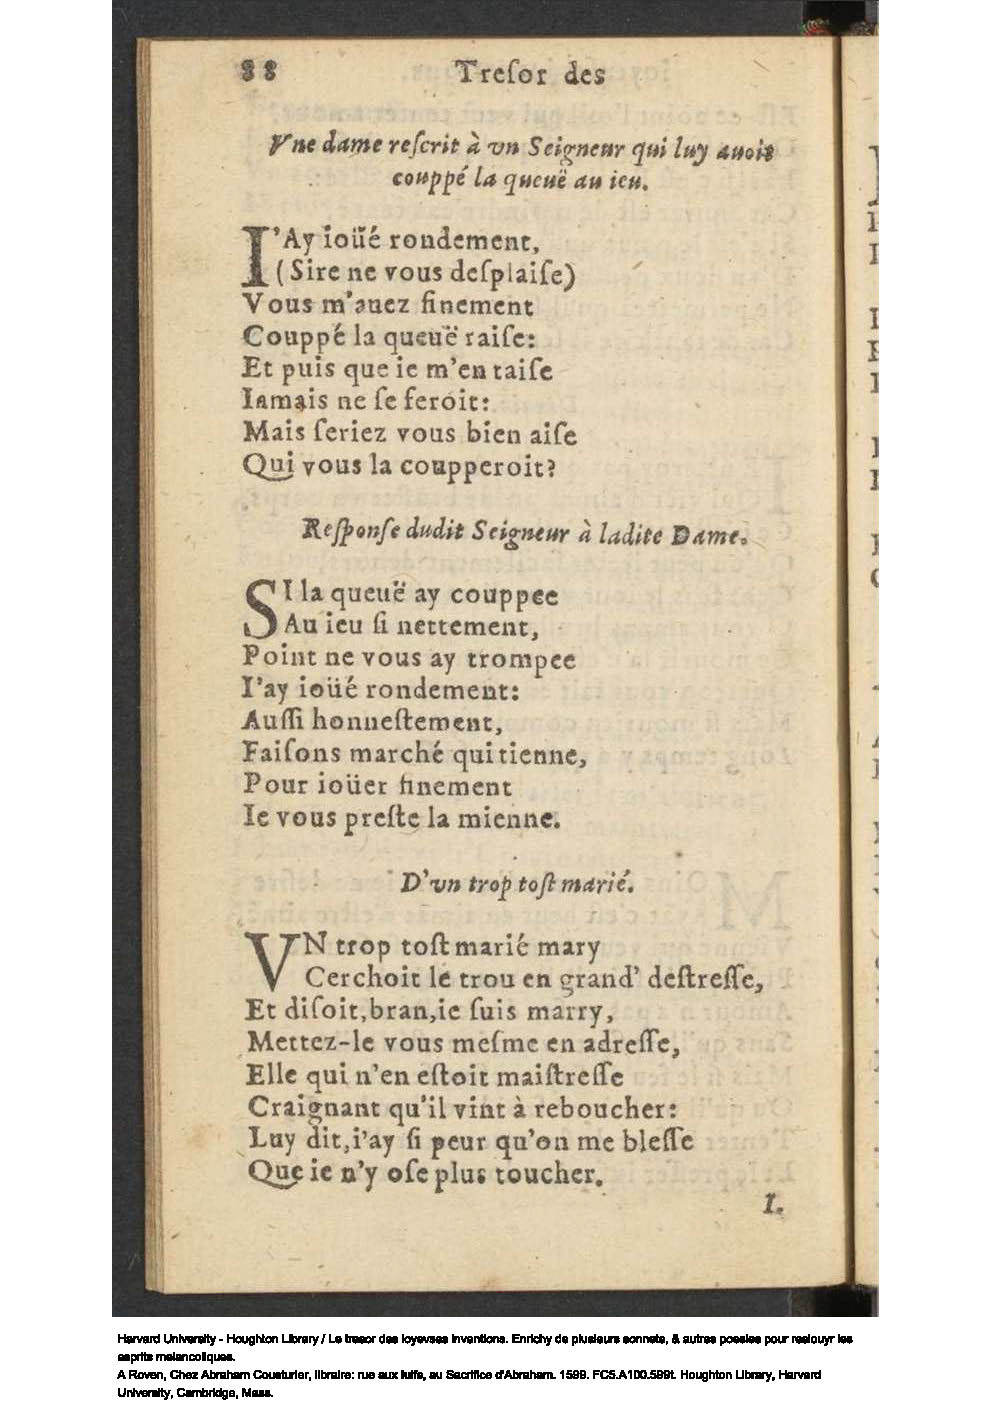 88 Treſor des
Vne dame reſcrit à vn Seigneur qui luy auoit
couppé la queuë au ieu.
I'Ay ioüé rondement,
(Sire ne vous deſplaiſe)
Vous m'auez finement
Couppé la queuë raiſe:
Et puis que ie m'en taiſe
Iamais ne ſe feroit:
Mais ſeriez vous bien aiſe
Qui vous la coupperoit?
Reſponſe dudit Seigneur à ladite Dame.
SI la queuë ay couppee
Au ieu ſi nettement,
Point ne vous ay trompee
I'ay ioüé rondement:
Auſſi honneſtement,
Faiſons marché qui tienne,
Pour ioüer finement
Ie vous preſte la mienne.
D'vn trop toſt marié.
VN trop toſt marié mary
Cerchoit le trou en grand' deſtreſſe,
Et diſoit, bran, ie ſuis marry,
Mettez-le vous meſme en adreſſe,
Elle qui n'en eſtoit maiſtreſſe
Craignant qu'il vint à reboucher:
Luy dit, i'ay ſi peur qu'on me bleſſe
Que ie n'y oſe plus toucher.
I.
Harvard University - Houghton Library / Le tresor des ioyevses inventions. Enrichy de plusieurs sonnets, & autres poesies pour resiouyr les
esprits melancoliques.
A Roven, Chez Abraham Cousturier, libraire: rue aux Iuifs, au Sacrifice d'Abraham. 1599. FC5.A100.599t. Houghton Library, Harvard
University, Cambridge, Mass.